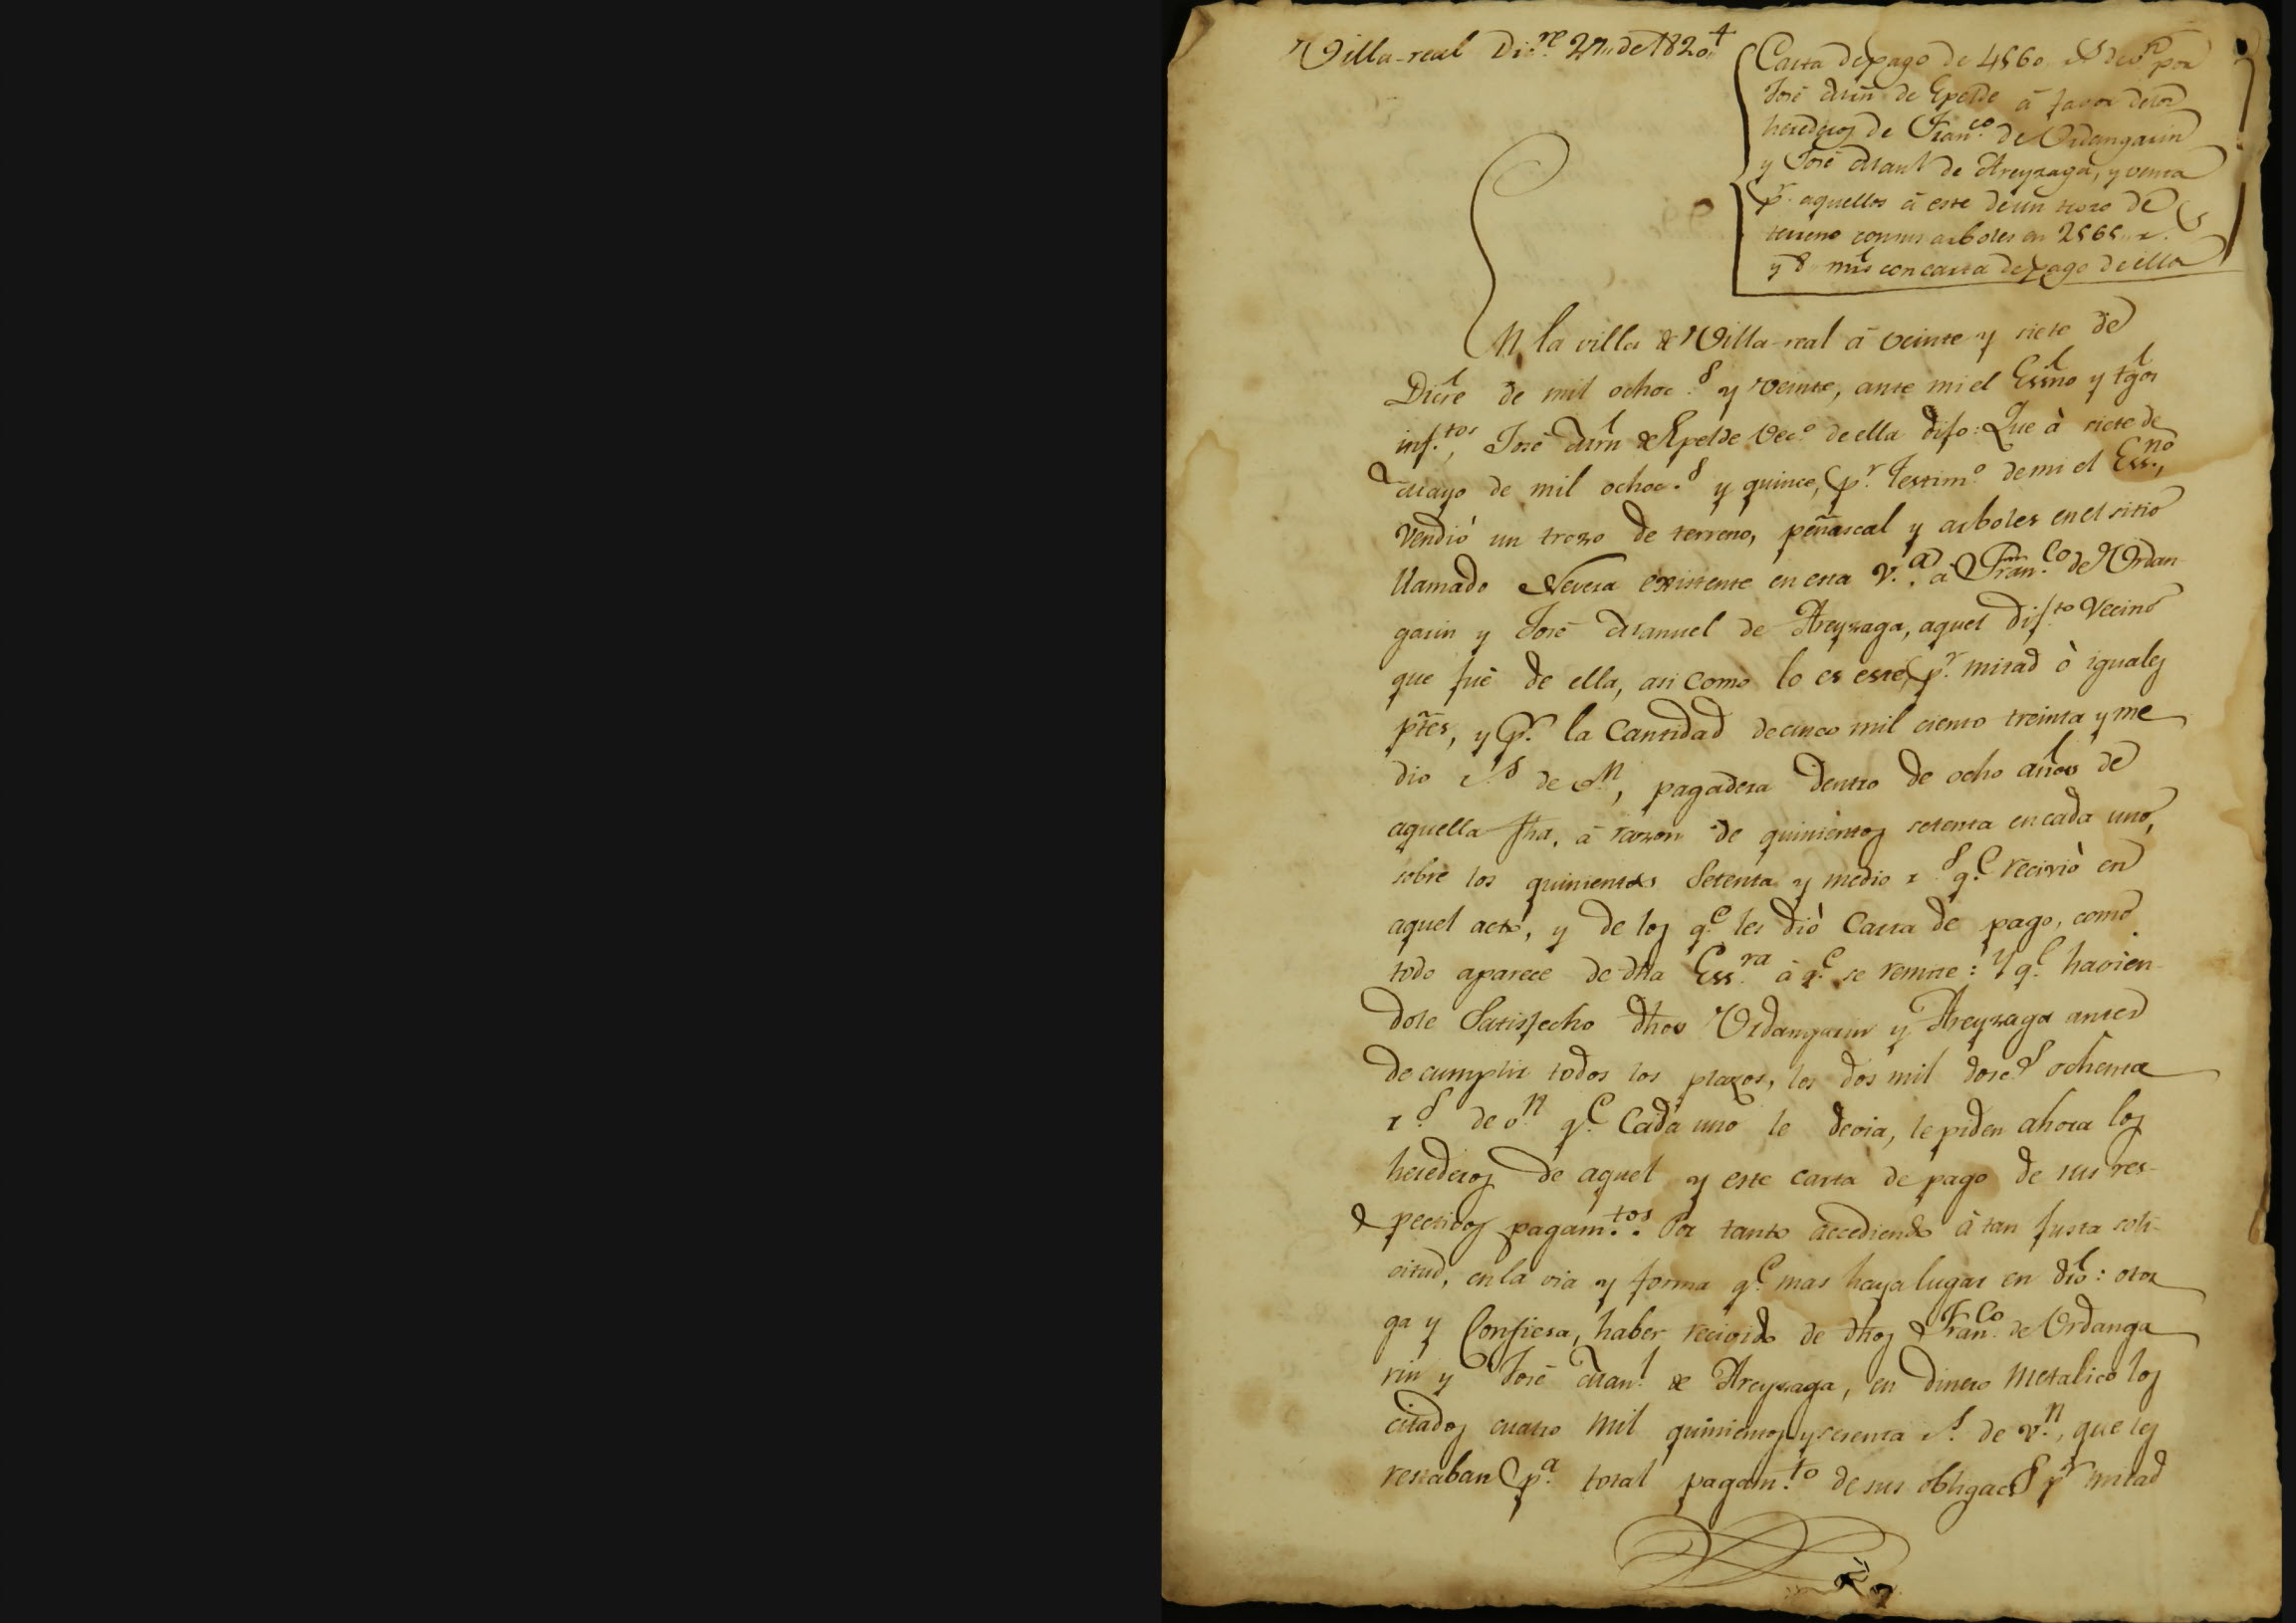 Villa-real Dic.re 27,, de 1820,,
Carta de pago de 4560 r.s de v.n por
José Mrn de Epelde á favor de los
herederos de Fran.co de Urdangarin
y José Manl de Areyzaga, y venta
p.r aquellos á este de un trozo de
terreno con sus arboles en 2565,, r.s
y 8 mrs con carta de pago de ella
En la villa de Villa-real á veinte y siete de
Dicre de mil ochoc.s y veinte, ante mi el Essno y tgos
inf.tos, José Mrn de Epelde Vec.o de ella dijo: Que à siete de
Mayo de mil ochoc.s y quince, p.r Testim.o de mi el Ess.no,
vendiò un trozo de terreno, peñascal y arboles en el sitio
llamado Nevera existente en esta V.a à Fran.co de Urdan-
garin y José Manuel de Areyzaga, aquel dif.to vecino
que fué de ella, asi como lo es este, p.r mitad ò iguales
ptes, y p.r la cantidad de cinco mil ciento treinta y me
dio r.s de v.n, pagadera dentro de ocho años de
aquella fha, á razon de quinientos setenta en cada uno,
sobre los quinientos setenta y medio r.s q.e reciviò en
aquel acto, y de los q.e les diò Carta de pago, como
todo aparece de dha Ess.ra à q.e se remite: Y q.e havien-
dole satisfecho dhos Urdangarin y Areyzaga antes
de cumplir todos los plazos, los dos mil dosc.s ochenta
r.s de v.n q.e cada uno le devia, le piden ahora los
herederos de aquel y este carta de pago de sus res-
pectivos pagam.tos. Por tanto accediendo à tan justa soli-
citud, en la via y forma q.e mas haya lugar en dro: otor
ga y Confiesa, haber recivido de dhos Fran.co de Urdanga
rin y José Man.l de Areyzaga, en dinero metalico los
citados cuatro mil quinientos y sesenta r.s de v.n, que les
restaban p.a total pagam.to de sus obligac.s p.r mitad